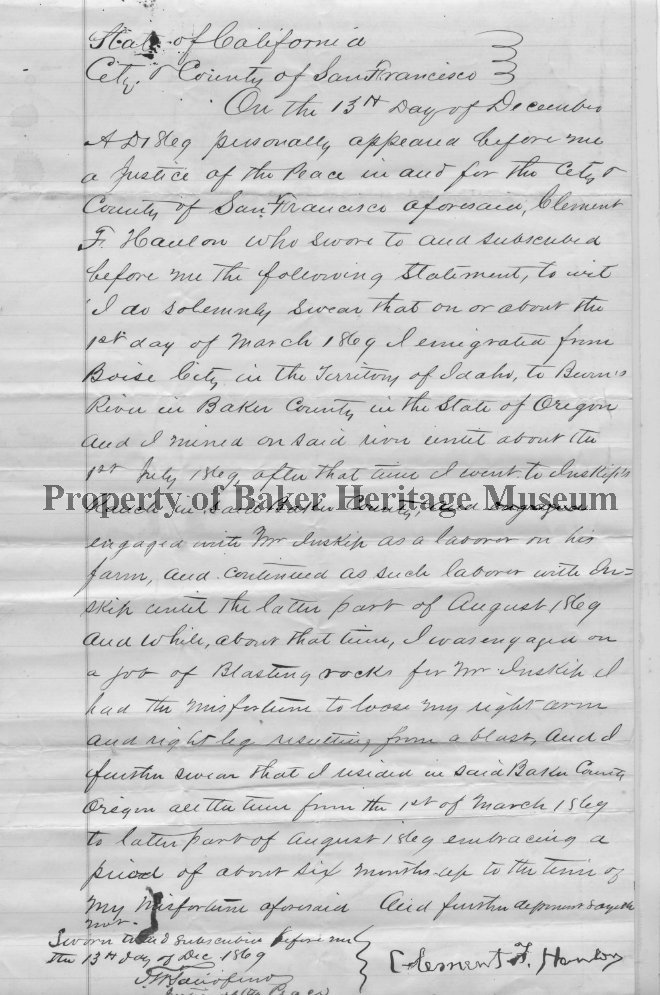 State of California
City & County of San Francisco
On the 13th Day of December
A D 1869 personally appeared before me
a Justice of the Peace in and for the City &
County of San Francisco aforesaid, Clement
F. Hanlon who swore to and subscribed
before me the following Statement, to wit
I do solemnly swear that on or about the
1st day of March 1869 I emigrated from
Boise City in the Territory of Idaho, to Burn's
River in Baker County in the State of Oregon
and I mined on said river until about the
1st July 1869 after that time I went to Inskip's
Property of Baker Heritage Museum
Ranch in said Baker County, and
engaged with Mr Inskip as a laborer on his
farm, and continued as such laborer with In=
skip until the latter part of August 1869
and while, about that time, I was engaged on
a job of Blasting rocks for Mr Inskip I
had the misfortune to loose my right arm
and right leg resulting from a blast, and I
further swear that I resided in said Baker County
Oregon all the time from the 1st of March 1869
to latter part of August 1869 embracing a
period of about six months up to the time of
my misfortune aforesaid And further deponent sayeth
not.
Sworn to and subscribed before me
the 13th day of Dec 1869
Clement F. Hanlon
Justice of the Peace